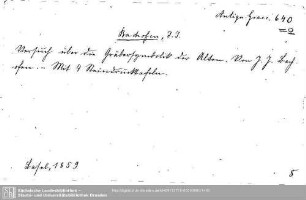 Antiqu. Graec. 640
Bachofen, J. J.
Versuch über die Gräbersymbolik der Alten. Von J. J. Bach-
ofen. – Mit 4 Steindrucktafeln.
Basel, 1859
8
Sächsische Landesbibliothek -
Staats- und Universitätsbibliothek Dresden